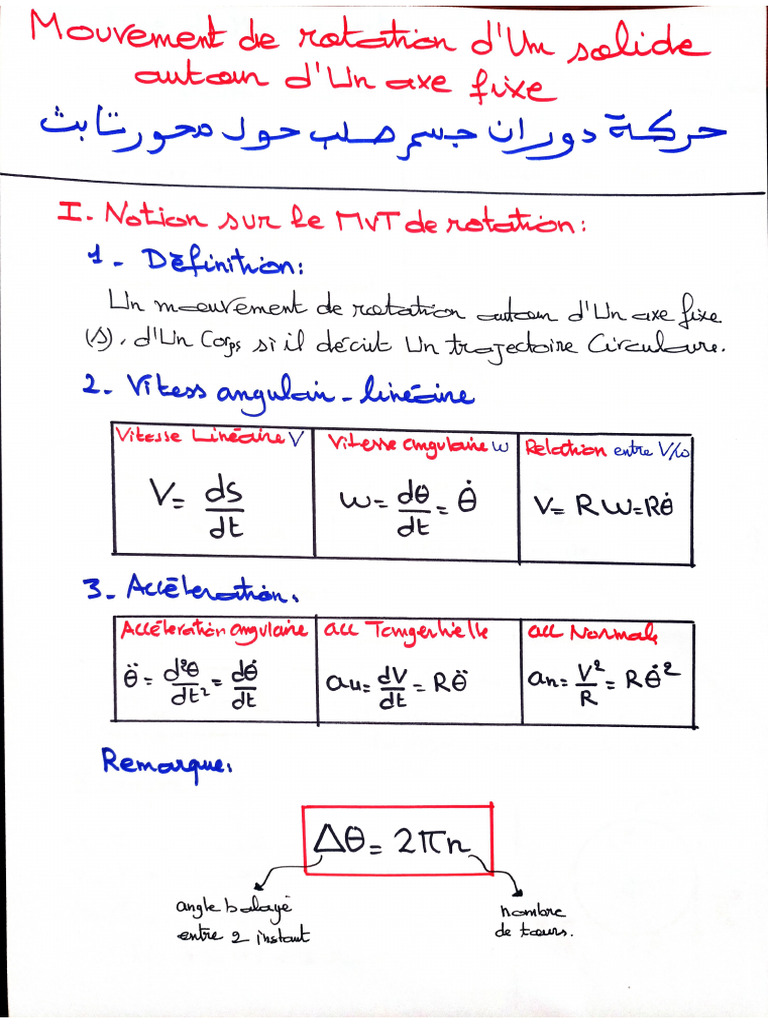 Mouvement de rotation d'Un solide
autoun d'Un axe fixe
حركة دوران جسم صلب حول محور ثابت
I. Notion sur le MVT de rotation:
1 - Définition:
Un mouvement de rotation autoun d'Un axe fixe
(s), d'Un Corps si il décrit Un trajectoire Circulaire.
2. Vitess angulain - linéaire
Vitesse Linéaire V
Vitesse angulaire w
Relation entre V/w
V = ds/dt
w = dθ/dt = θ̇
V = R w = Rθ̇
3 - Accéleration.
Accéleration angulaire
acc Tangentielle
acc Normale
θ̈ = d²θ/dt² = dθ̇/dt
au = dV/dt = Rθ̈
an = V²/R = Rθ̇²
Remarque:
Δθ = 2πn
angle balayé
entre 2 instant
nombre
de tours.